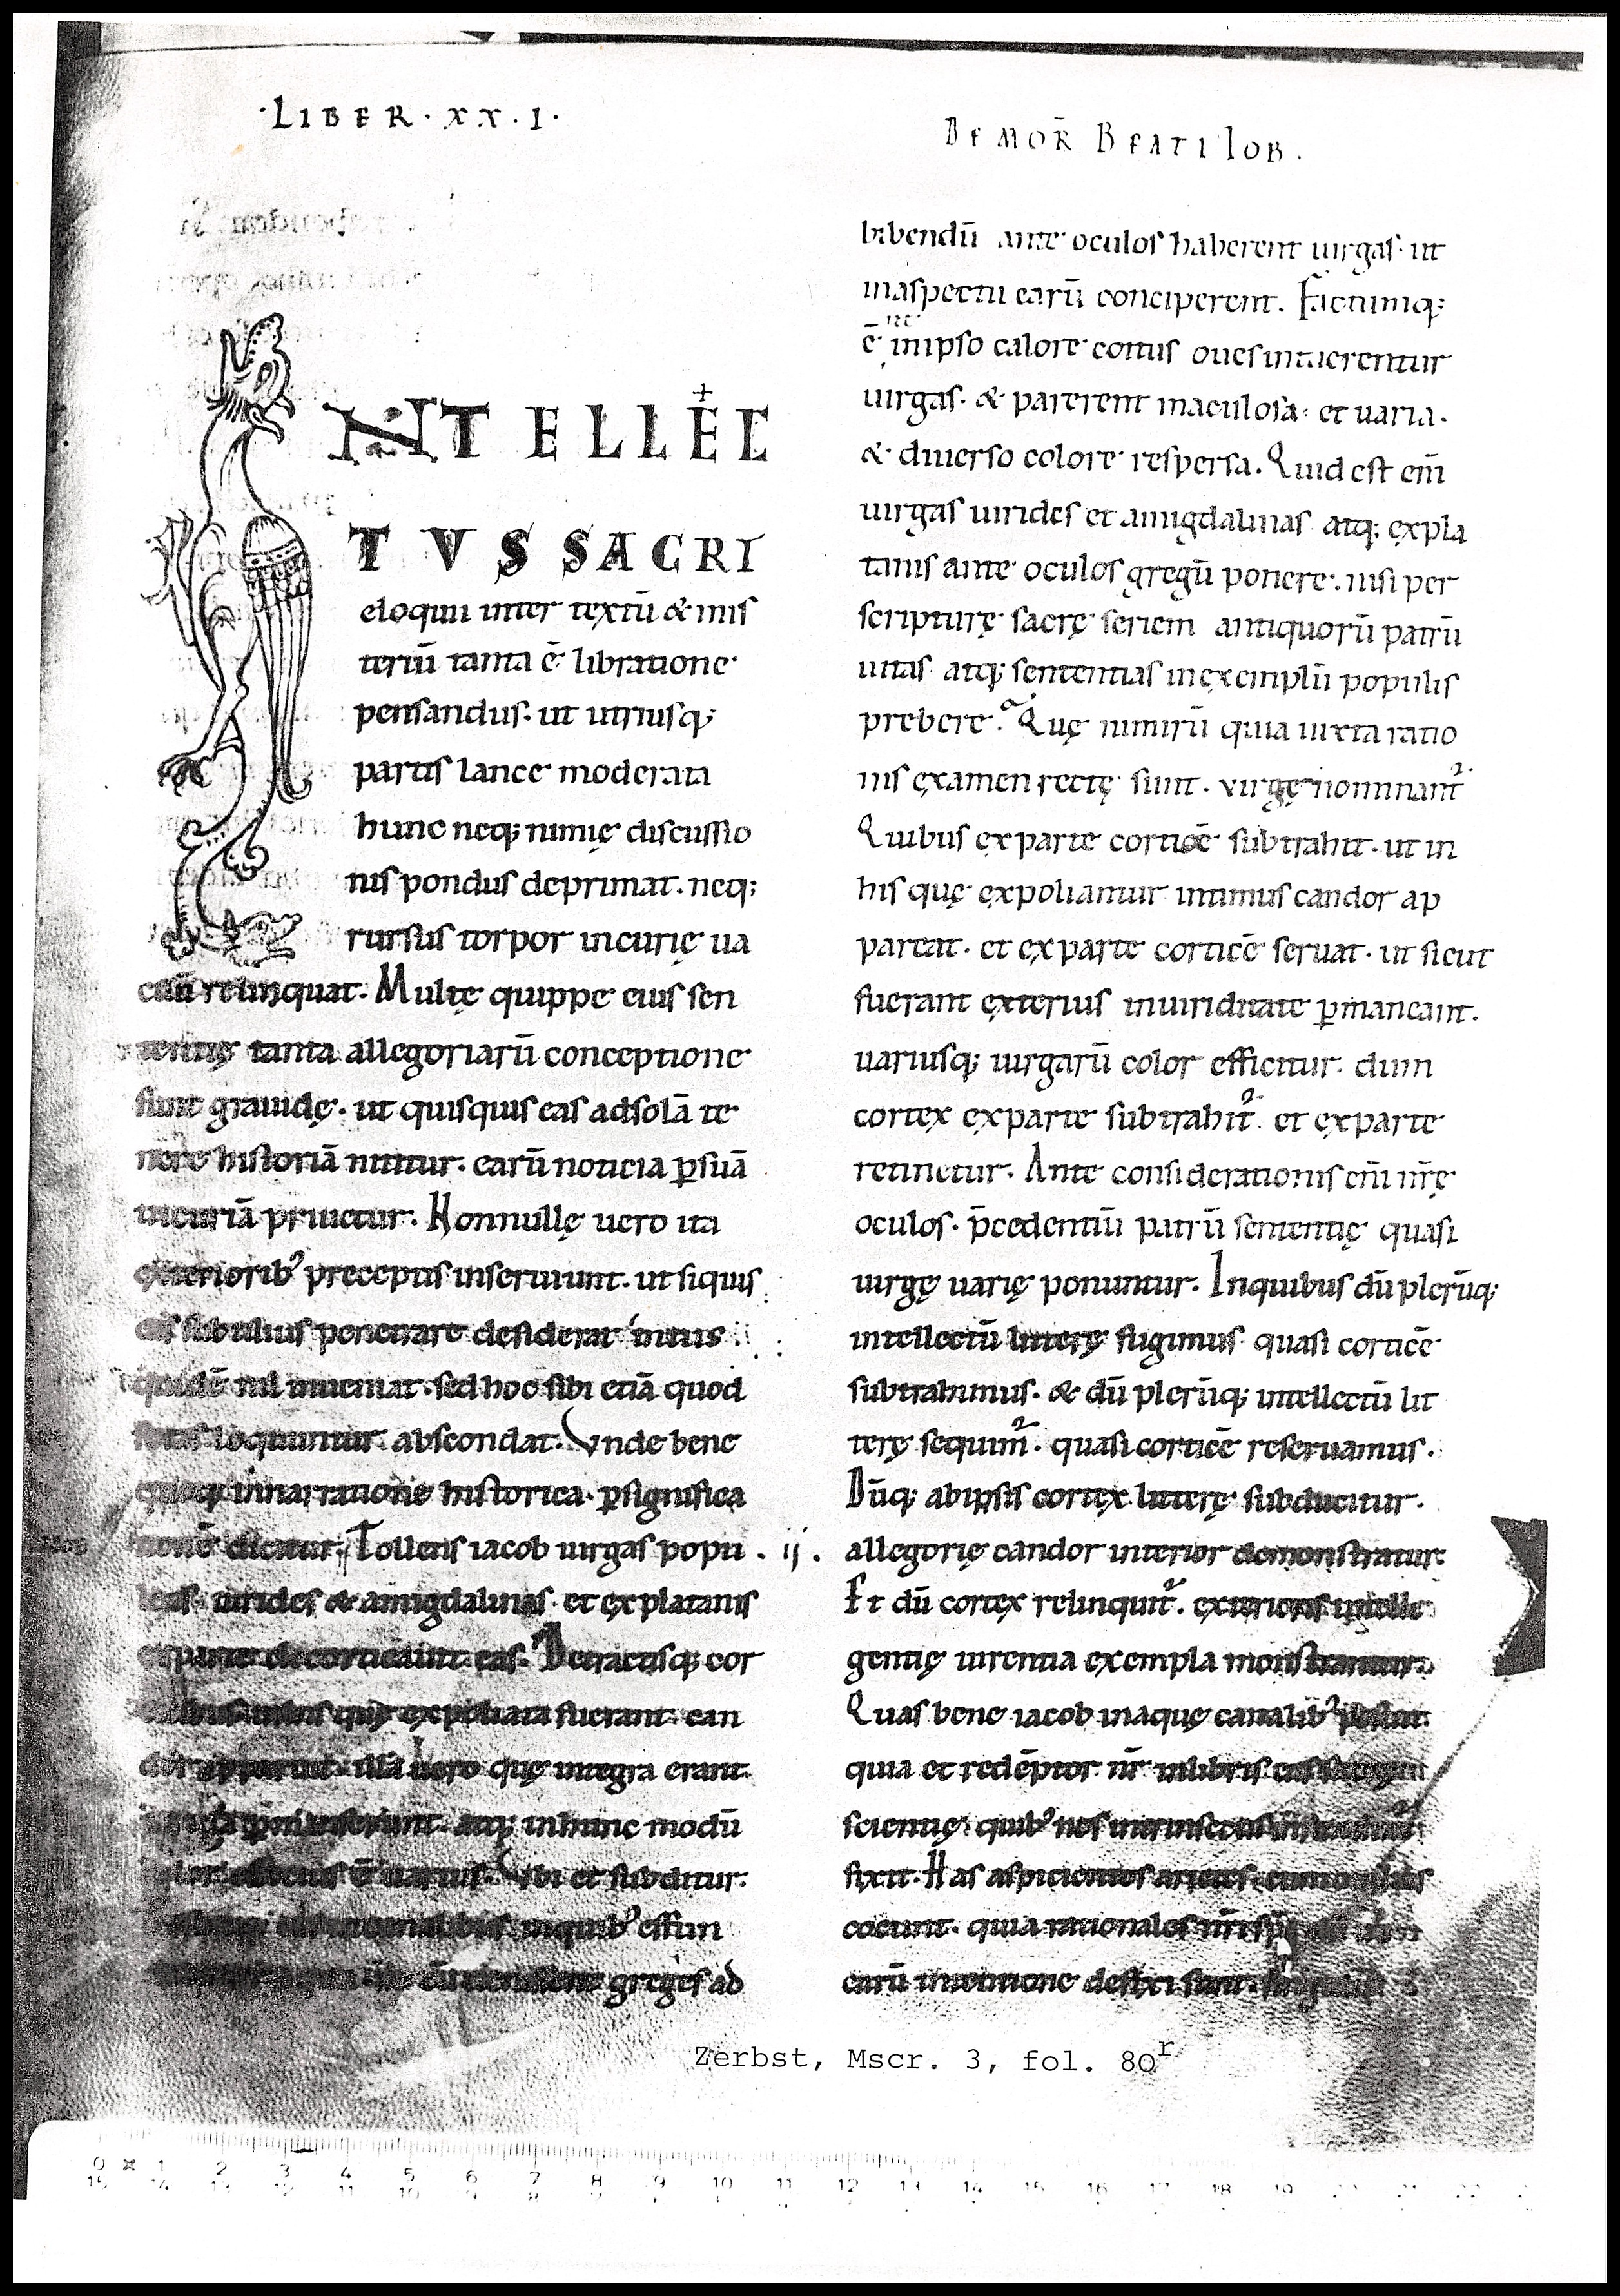 ·LIBER·XX·I·
DE MOR̄ BEATI IOB.
INTELLEC
TVS SACRI
eloquii inter textū & mis
teriū tanta ē libratione
pensandus. ut utriusq;
partis lance moderata
hunc neq; nimię discussio
nis pondus deprimat. neq;
rursus torpor incurię ua
cuū relinquat. Multę quippe eius sen
tentię tanta allegoriarū conceptione
sunt grauidę. ut quisquis eas ad solā te
nere historiā nititur. earū noticia p̱ suā
incuriā priuetur. Nonnullę uero ita
exteriorib᾽ preceptis inseruiunt. ut siquis
eas subtilius penetrare desiderat intus
quidē nil inueniat. sed hoc sibi etiā quod
foris loquuntur abscondat. Vnde bene
quoq; in narratione historica p̱ significa
tionē dicitur. Tollens iacob uirgas popu
.ij.
leas uirides & amigdalinas. et ex platanis
ex parte decorticauit eas. Detractisq; cor
ticibus in his quę expoliata fuerant can
dor apparuit. illa uero quę integra erant
uiridia p̱manserunt. atq; in hunc modū
color effectus ē uarius. ibi et subditur.
canalibus in quib᾽ effun
cū uenissent greges ad
bibendū ante oculos haberent uirgas. ut
in aspectu earū conciperent. Factumq;
ē in ipso calore coitus oues intuerentur
uirgas. & parerent maculosa. et uaria.
& diuerso colore respersa. Quid est em̄
uirgas uirides et amigdalinas atq; ex pla
tanis ante oculos gregū ponere. nisi per
scripturę sacrę seriem antiquorū patrū
uitas atq; sententias in exemplū populis
prebere. Quę nimirū quia iuxta ratio
nis examen rectę sunt. virgę nominant᾽
Quibus ex parte corticē subtrahit. ut in
his quę expoliantur intimus candor ap
pareat. et ex parte corticē seruat. ut sicut
fuerant exterius in uiriditate p̱maneant.
uariusq; uirgarū color efficitur. dum
cortex ex parte subtrahit᾽. et ex parte
retinetur. Ante considerationis eni nr̄ę
oculos. p̄cedentiū patrū sententię quasi
uirgę uarię ponuntur. In quibus dū plerūq;
intellectū litterę fugimus quasi corticē
subtrahimus. & dū plerūq; intellectū lit
terę sequim᾽. quasi corticē reseruamus.
Dūq; ab ipsis cortex litterę subducitur.
allegorię candor interior demonstratur.
Et dū cortex relinquit᾽. exterioris intelle
gentię uirentia exempla monstrantur.
Quas bene iacob in aquę canalib᾽ posuit.
quia et redēptor nr̄ in libris eas sacrę
scientię. quib᾽ nos intrinsecus
fixit. Has aspicientes arietes cum ouibus
coeunt. quia rationales nr̄i sp̄s dum
earū intentione defixi sunt.
Zerbst, Mscr. 3, fol. 80r
0 1 2 3 4 5 6 7 8 9 10 11 12 13 14 15 16 17 18 19